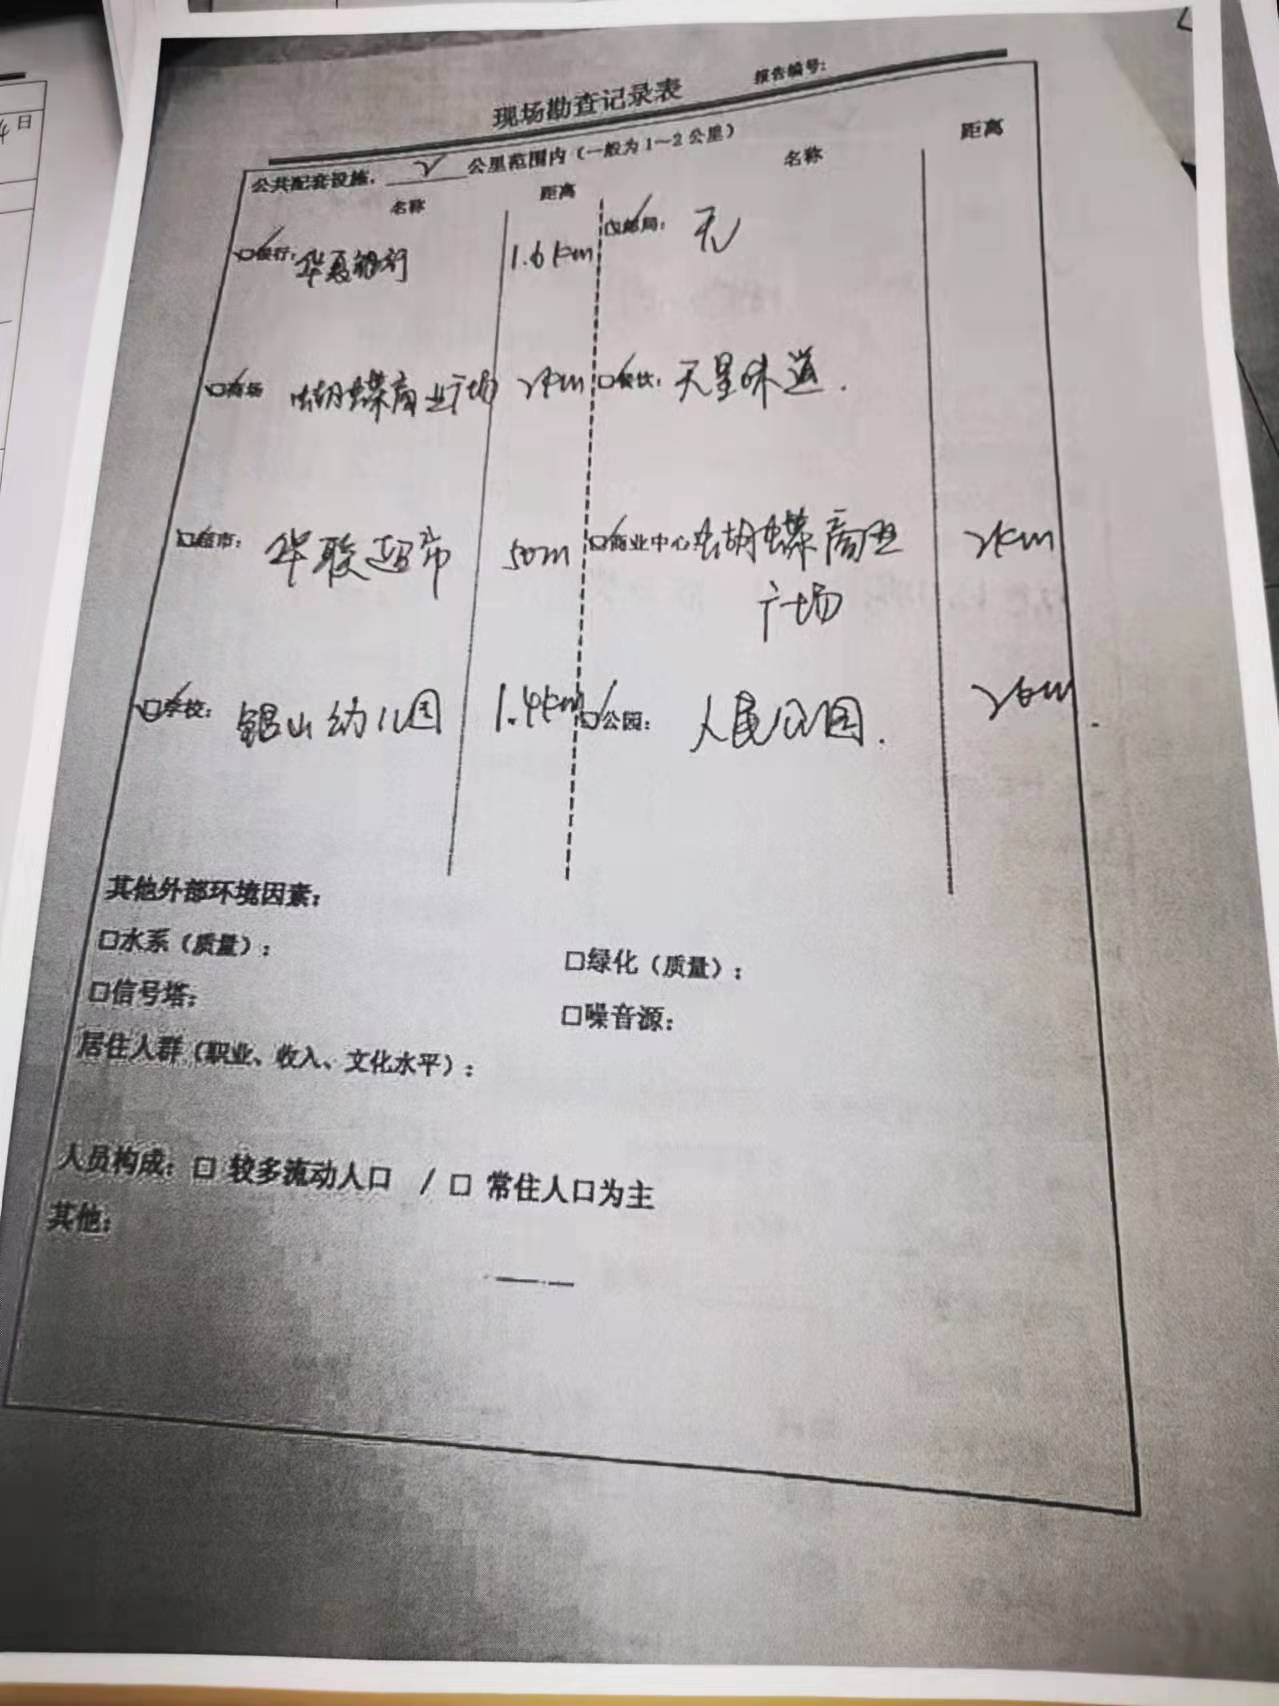 4日
现场勘查记录表
报告编号:
公共配套设施, 2 公里范围内（一般为1～2公里）
名称 距离 名称 距离
☑银行: 华夏银行 1.6km ☑邮局: 无
☑商场 蝴蝶商业广场 2km ☑餐饮: 天星味道.
☑超市: 华联超市 50m ☑商业中心: 蝴蝶商业 2km
广场
☑学校: 银山幼儿园 1.4km ☑公园: 人民公园. 2km
其他外部环境因素:
☐水系（质量）: ☐绿化（质量）:
☐信号塔: ☐噪音源:
居住人群（职业、收入、文化水平）:
人员构成: ☐ 较多流动人口 / ☐ 常住人口为主
其他: